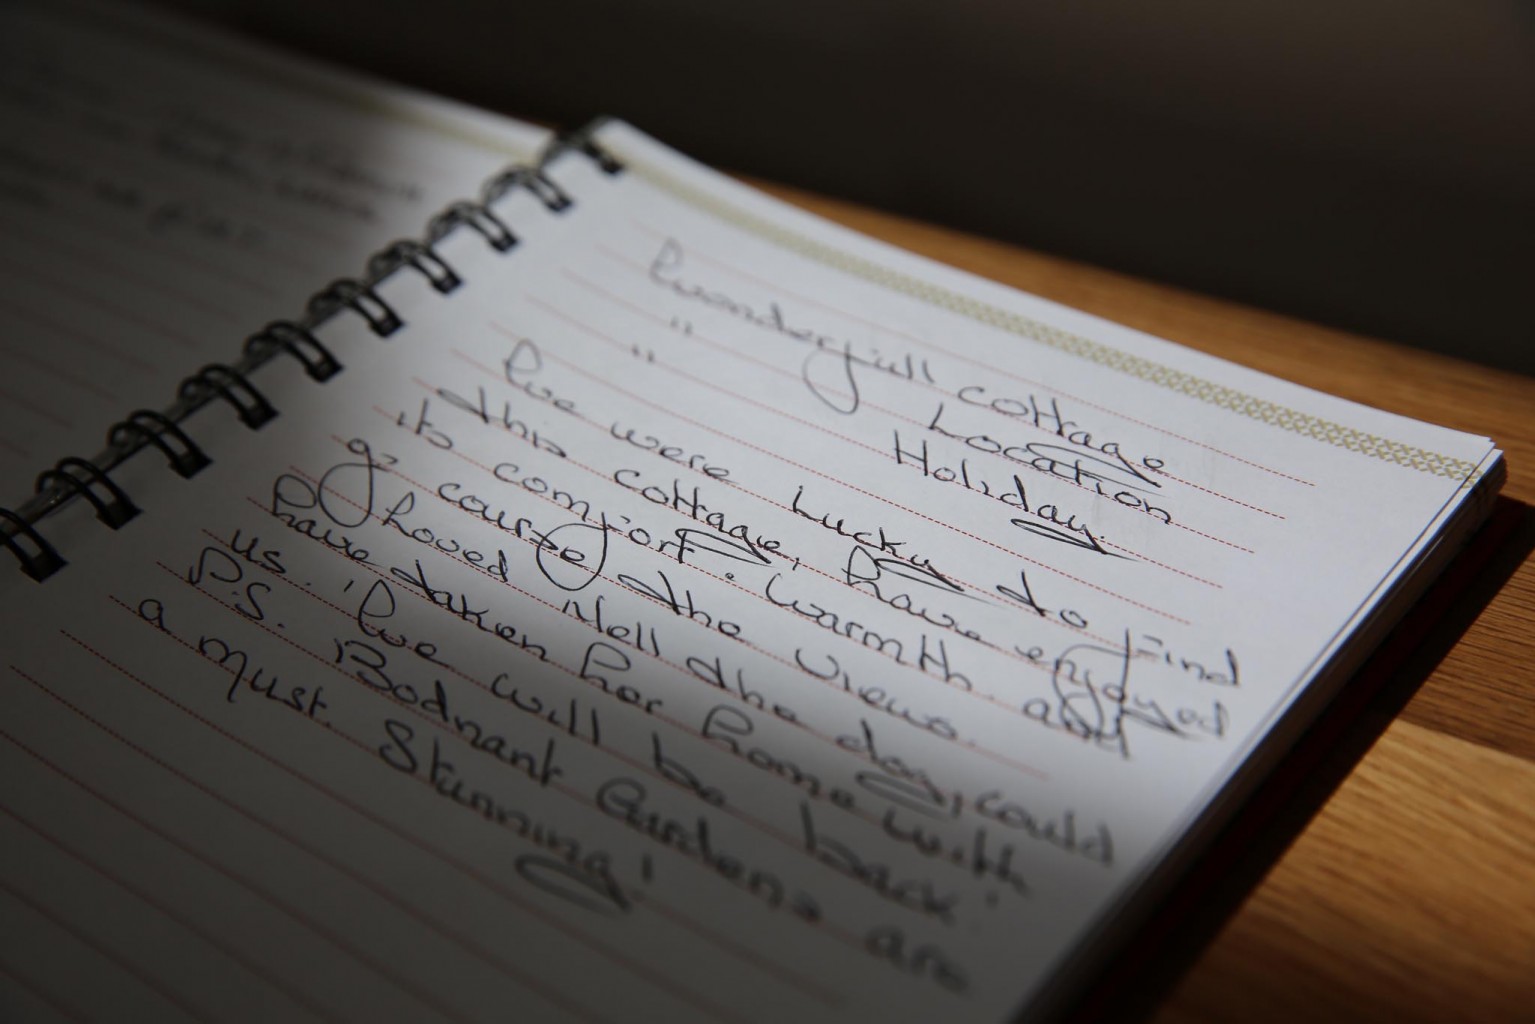 Wonderfull cottage
" Location
" Holiday.
We were Lucky to find
this cottage, have enjoyed
its comfort. warmth and
of course the views.
Loved Nell the dog, could
have taken her home with
us. 'We will be back'
P.S. Bodnant Gardens are
a must. Stunning!